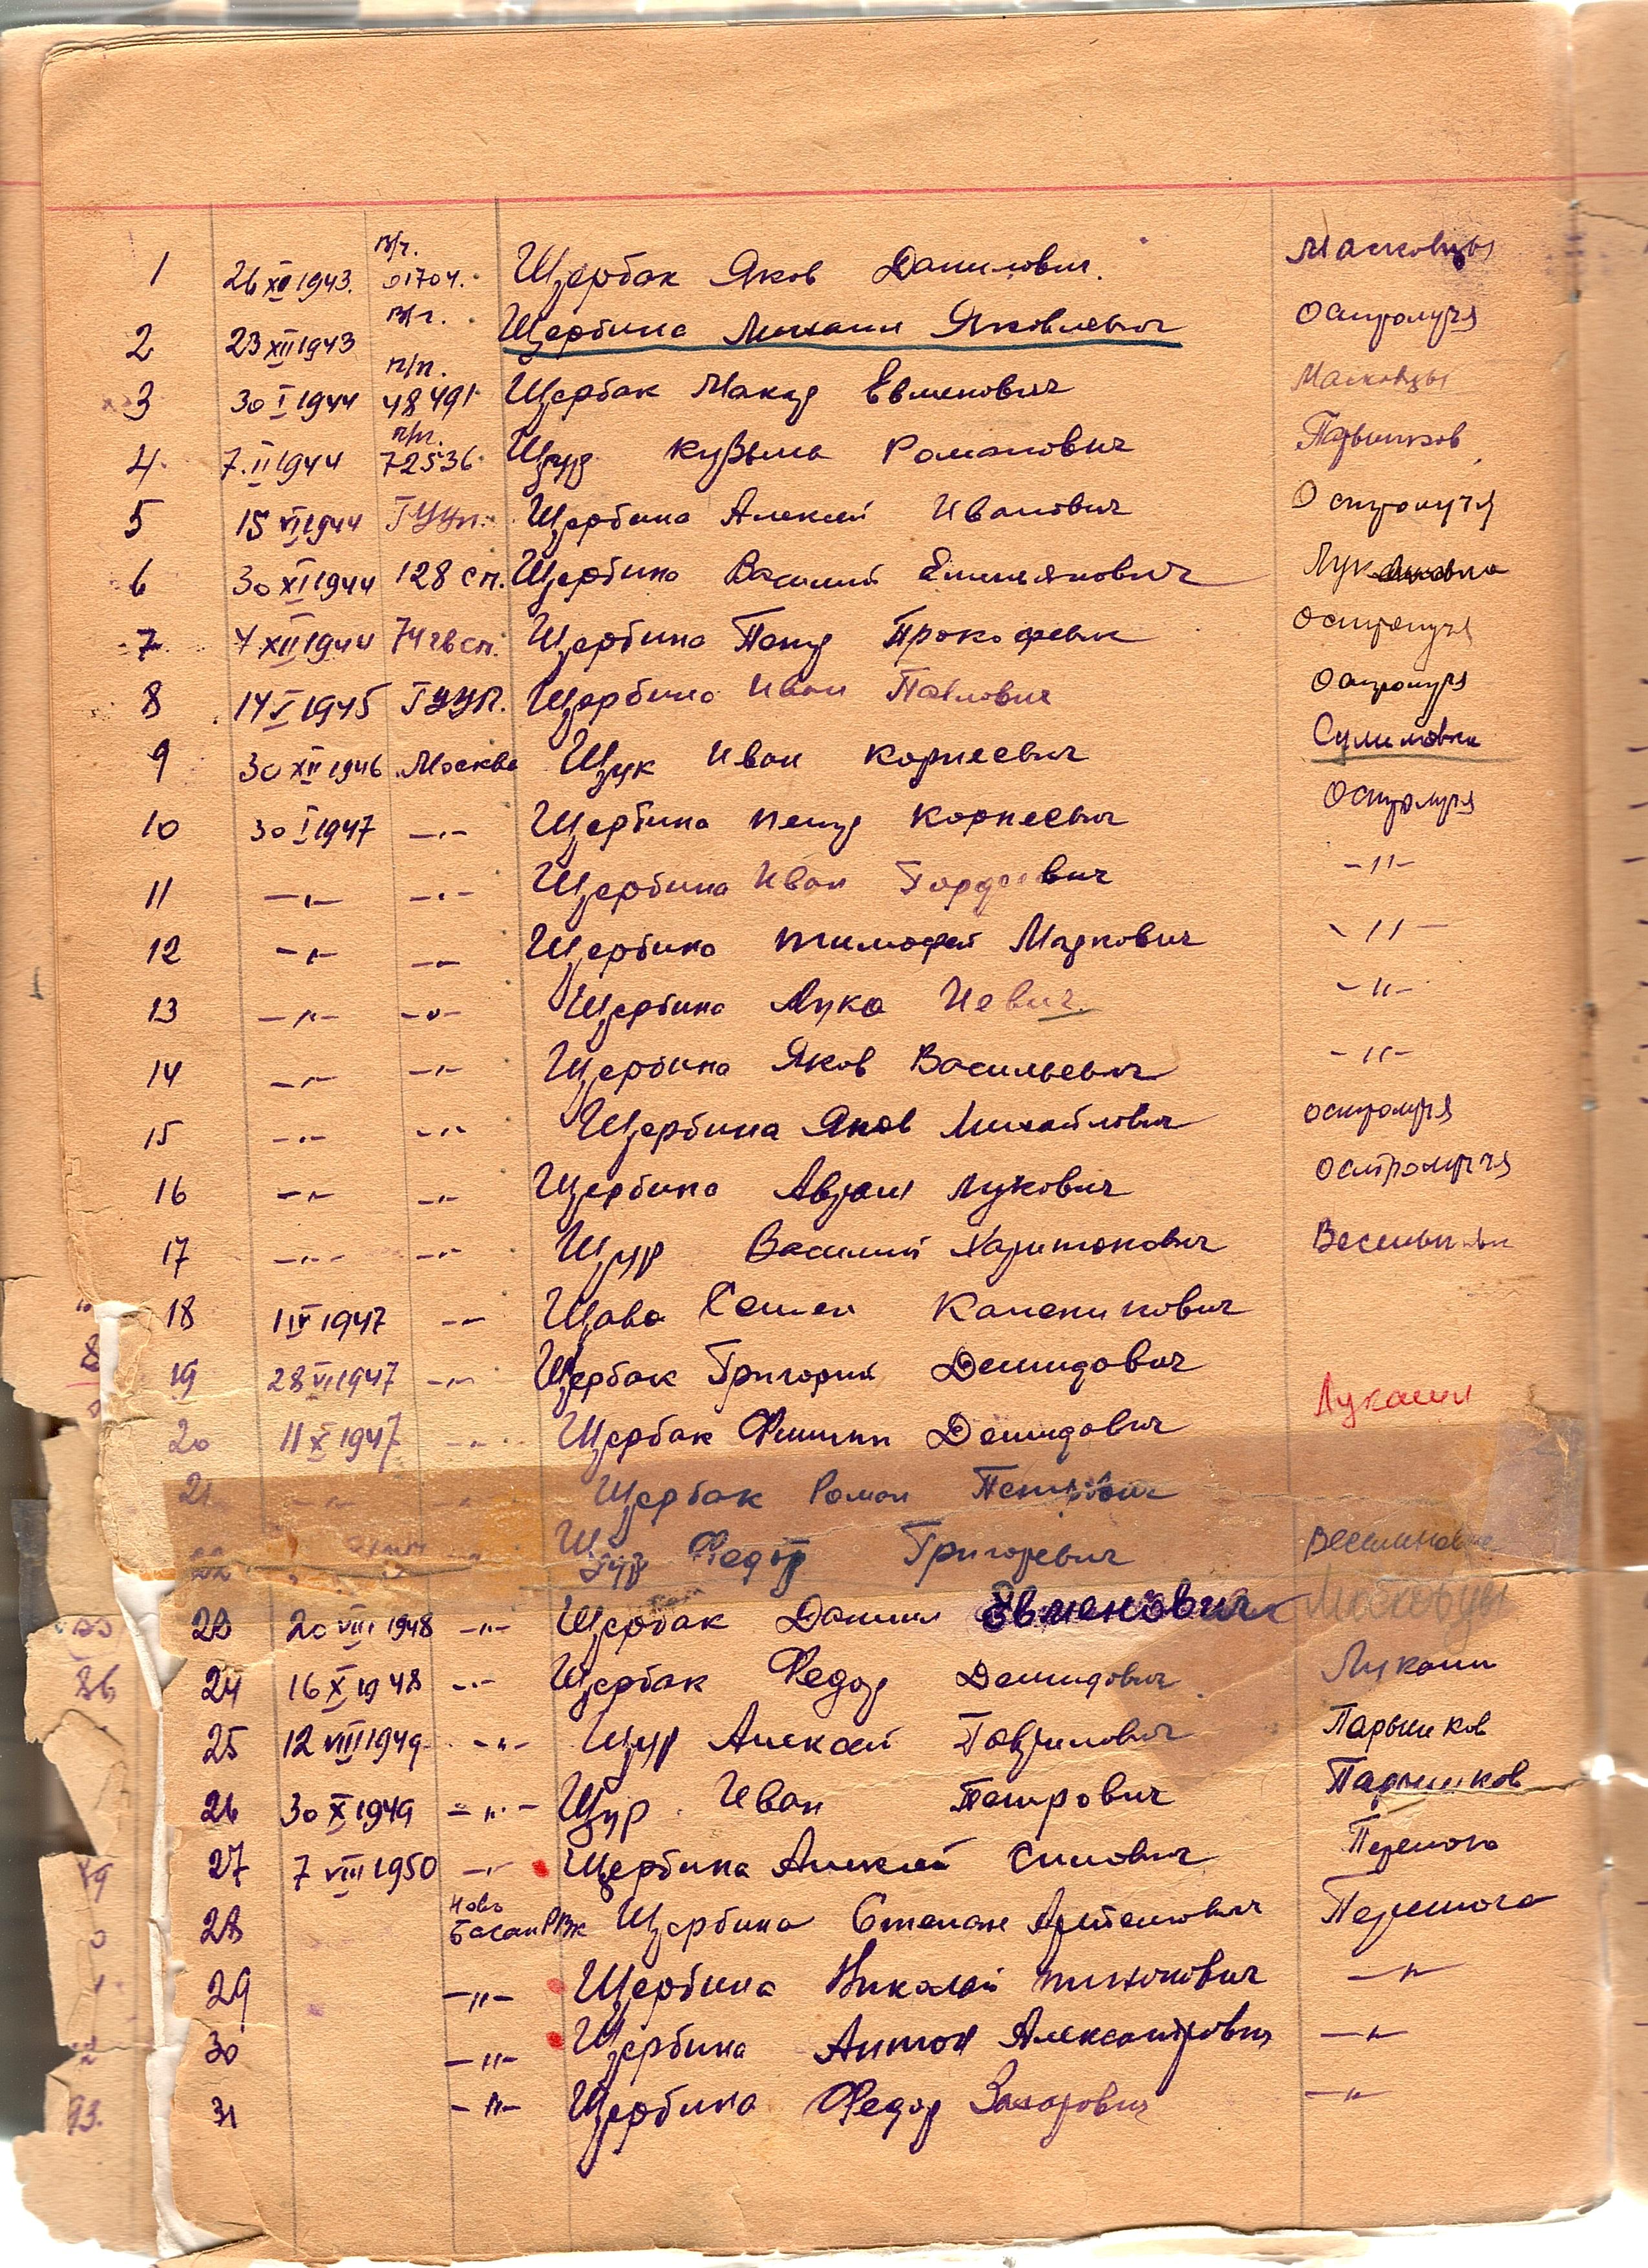 1 26 XII 1943. в/ч. 01704. Щербак Яков Данилович. Масковцы
2 23 XII 1943 в/ч. Щербина Михаил Яковлевич Остролучя
3 30 I 1944 п/п. 48491 Щербак Макар Евменович Масковцы
4. 7.II 1944 п/п. 72536 Щур Кузьма Романович Парышков
5 15 VI 1944 ГУУП. Щербина Алексей Иванович Остролучя
6 30 XI 1944 128 сп. Щербина Василий Емельянович
7 4 XII 1944 74 гв сп. Щербина Петр Прокофевич Остролучя
8 14 I 1945 ГУУП. Щербина Иван Павлович Остролучя
9 30 XII 1946 Москва Щук Иван Корнеевич Сулимовка
10 30 I 1947 -"- Щербина Петр Корнеевич Остролучя
11 -"- -"- Щербина Иван -"-
12 -"- -"- Щербина Тимофей Маркович -"-
13 -"- -"- Щербина Лука -"-
14 -"- -"- Щербина Яков Васильевич -"-
15 -"- -"- Щербина Яков Михайлович Остролучя
16 -"- -"- Щербина Аврам Лукович Остролучя
17 -"- -"- Щур Василий Харитонович
18 1 IV 1947 -"- Щава Семен
19 28 VI 1947 -"- Щербак Григорий Демидович
20 11 X 1947 -"- Щербак Филипп Демидович Лукаши
21 -"- -"- Щербак Роман Петрович
22 -"- Щур Федор Григоревич
23 20 VIII 1948 -"- Щербак Данил Евменович Масковцы
24 16 X 1948 -"- Щербак Федор Демидович Лукаши
25 12 VIII 1949 -"- Щур Алексей Гаврилович Парышков
26 30 X 1949 -"- Щур Иван Петрович Парышков
27 7 VIII 1950 -"- Щербина Алексей Силович Перемога
28 Ново Басан РВК Щербина Степан Артемович Перемога
29 -"- Щербина Николай Тихонович -"-
30 -"- Щербина Антон Александрович -"-
31 -"- Щербина Федор Захарович -"-